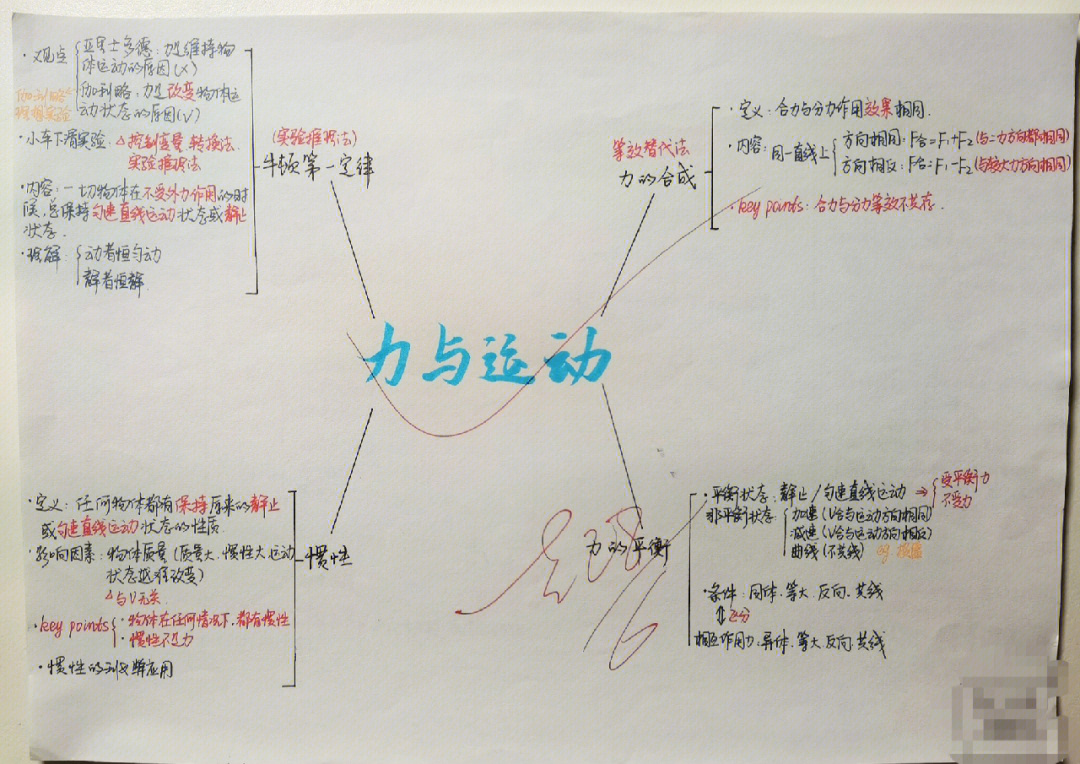 力与运动
(实验推理法)
牛顿第一定律
·观点
亚里士多德:力是维持物
体运动的原因(×)
伽利略:力是改变物体运
动状态的原因(√)
伽利略
理想实验
·小车下滑实验:△控制变量 转换法
实验推理法
·内容:一切物体在不受外力作用的时
候,总保持匀速直线运动状态或静止
状态.
·理解:
动者恒匀动
静者恒静
等效替代法
力的合成
·定义:合力与分力作用效果相同.
·内容:同一直线上
方向相同:F合=F₁+F₂(与二力方向都相同)
方向相反:F合=F₁-F₂(与较大力方向相同)
·key points:合力与分力等效不共存.
惯性
·定义:任何物体都有保持原来的静止
或匀速直线运动状态的性质.
·影响因素:物体质量(质量大.惯性大.运动
状态越难改变)
△与V无关.
·key points
·物体在任何情况下.都有惯性
·惯性不是力
·惯性的利&弊应用
力的平衡
·平衡状态:静止/匀速直线运动⇒
受平衡力
不受力
非平衡状态
加速(F合与运动方向相同)
减速(F合与运动方向相反)
曲线(不共线)
·条件:同体.等大.反向.共线
区分
相互作用力:异体.等大.反向.共线